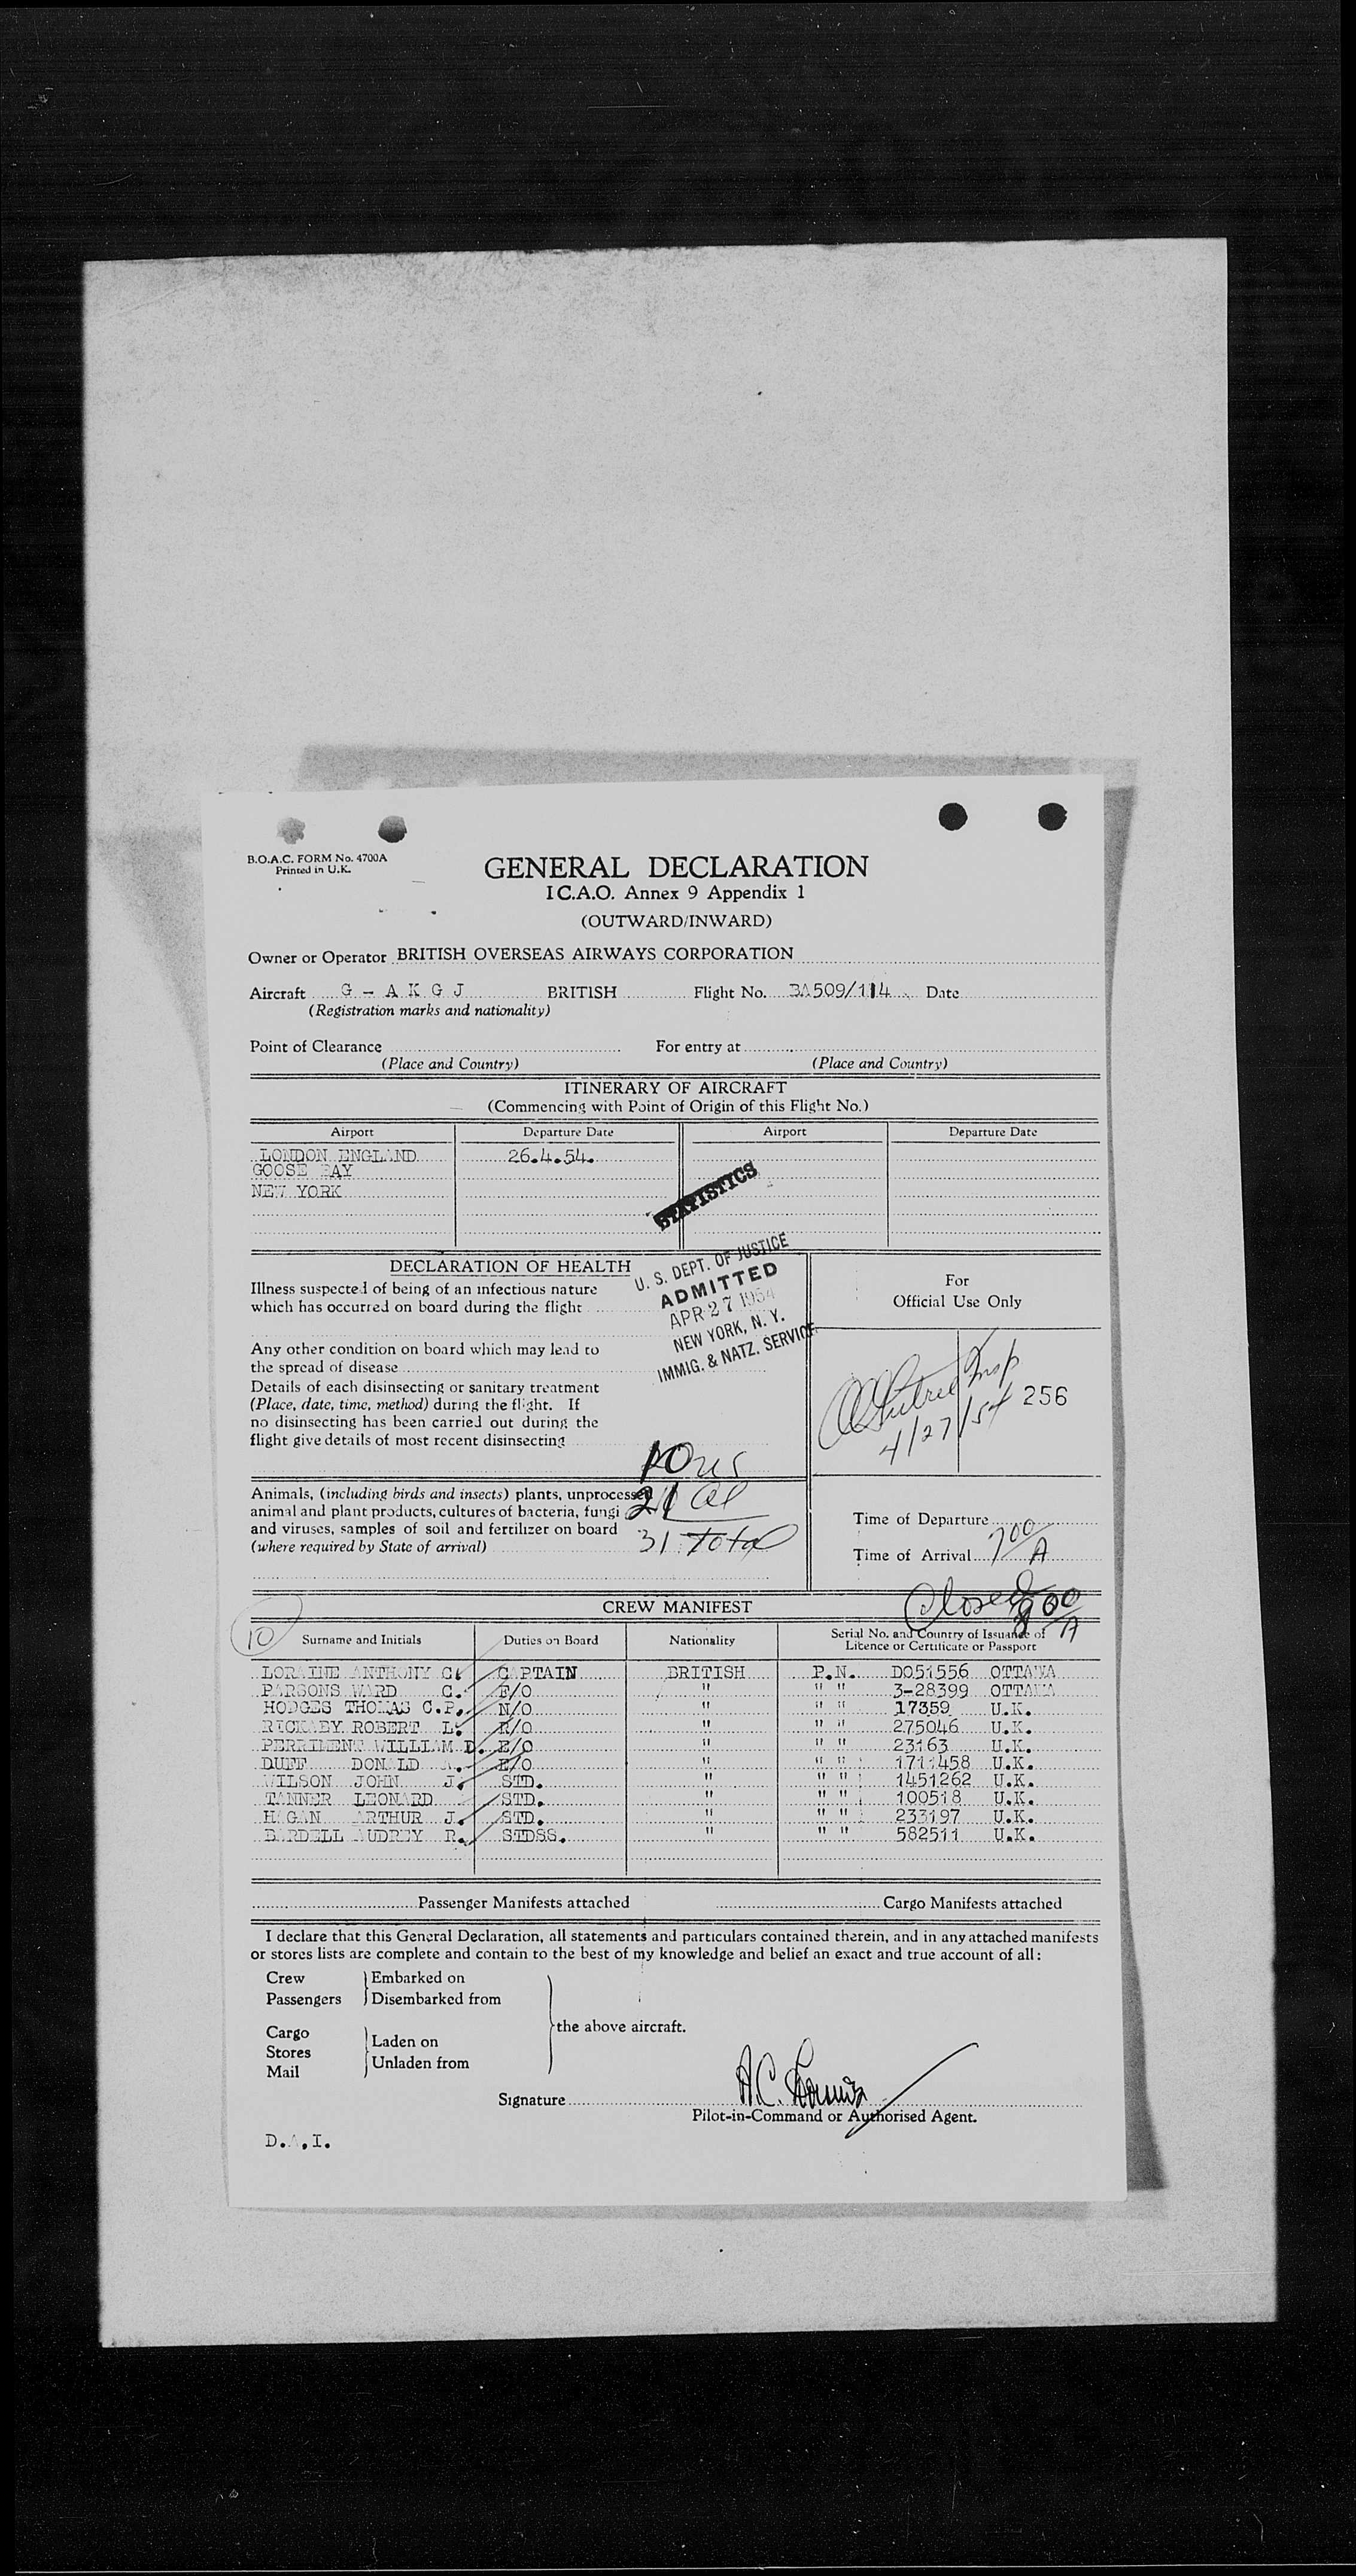 B.O.A.C. FORM No. 4700A
Printed in U.K.
GENERAL DECLARATION
I C.A.O. Annex 9 Appendix 1
(OUTWARD/INWARD)
Owner or Operator BRITISH OVERSEAS AIRWAYS CORPORATION
Aircraft G - A K G J BRITISH Flight No. BA509/114 Date
(Registration marks and nationality)
Point of Clearance For entry at
(Place and Country) (Place and Country)
ITINERARY OF AIRCRAFT
(Commencing with Point of Origin of this Flight No.)
Airport Departure Date Airport Departure Date
LONDON ENGLAND 26.4.54.
GOOSE BAY
NEW YORK
STATISTICS
DECLARATION OF HEALTH
Illness suspected of being of an infectious nature
which has occurred on board during the flight
Any other condition on board which may lead to
the spread of disease
Details of each disinsecting or sanitary treatment
(Place, date, time, method) during the flight. If
no disinsecting has been carried out during the
flight give details of most recent disinsecting
U. S. DEPT. OF JUSTICE
ADMITTED
APR 27 1954
NEW YORK, N. Y.
IMMIG. & NATZ. SERVICE
For
Official Use Only
Insp
4/27/54 256
10 us
21 al
31 Total
Animals, (including birds and insects) plants, unprocessed
animal and plant products, cultures of bacteria, fungi
and viruses, samples of soil and fertilizer on board
(where required by State of arrival)
Time of Departure
Time of Arrival 700 A
Closed 800 A
CREW MANIFEST
10
Surname and Initials Duties on Board Nationality Serial No. and Country of Issuance of
Licence or Certificate or Passport
LORAINE ANTHONY C. CAPTAIN BRITISH P.N. D051556 OTTAWA
PARSONS WARD C. F/O " " " 3-28399 OTTAWA
HODGES THOMAS C.P. N/O " " " 17359 U.K.
RICKABY ROBERT L. R/O " " " 275046 U.K.
PERRIMENT WILLIAM D. E/O " " " 23163 U.K.
DUFF DONALD A. E/O " " " 1711458 U.K.
WILSON JOHN J. STD. " " " 1451262 U.K.
TANNER LEONARD STD. " " " 100518 U.K.
HAGAN ARTHUR J. STD. " " " 233197 U.K.
BARDELL AUDREY R. STDSS. " " " 582511 U.K.
Passenger Manifests attached Cargo Manifests attached
I declare that this General Declaration, all statements and particulars contained therein, and in any attached manifests
or stores lists are complete and contain to the best of my knowledge and belief an exact and true account of all:
Crew Embarked on
Passengers Disembarked from
the above aircraft.
Cargo Laden on
Stores
Mail Unladen from
Signature A.C. Loraine
Pilot-in-Command or Authorised Agent.
D.A.I.